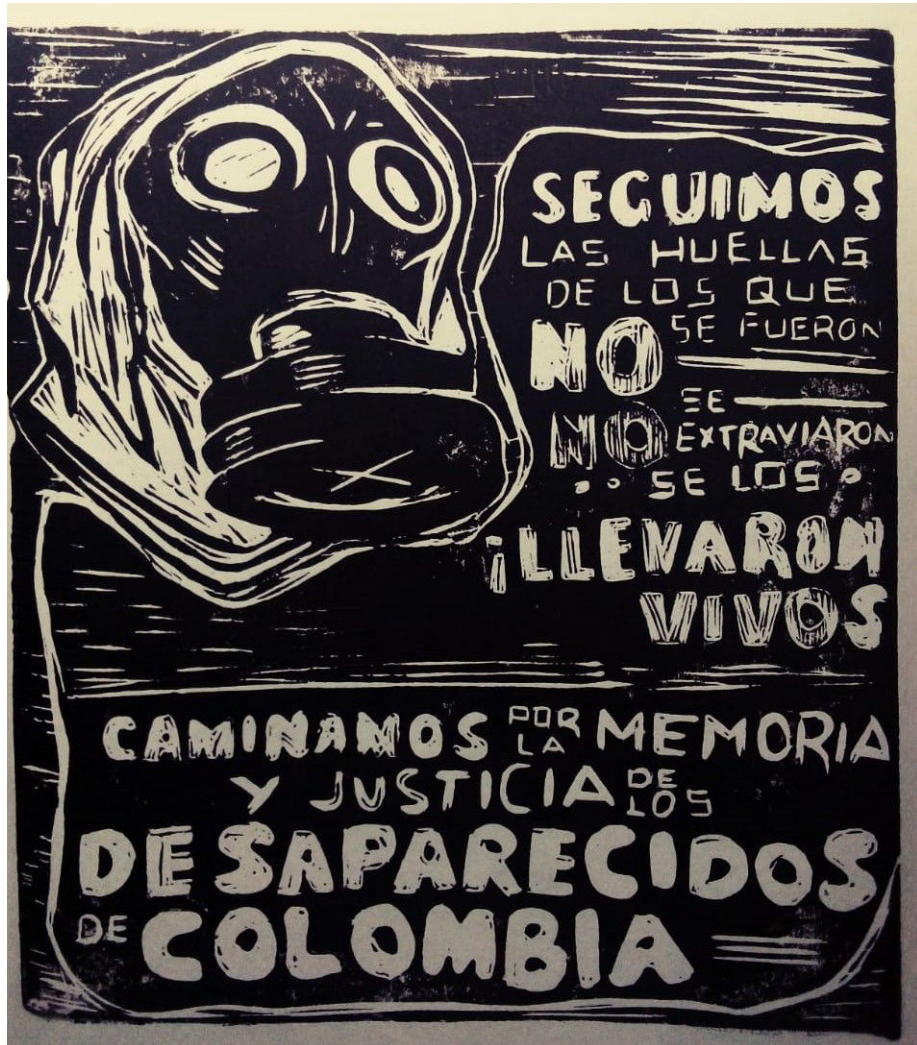 SEGUIMOS
LAS HUELLAS
DE LOS QUE
NO SE FUERON
NO SE EXTRAVIARON
SE LOS
¡LLEVARON
VIVOS
CAMINANOS POR LA MEMORIA
Y JUSTICIA DE LOS
DESAPARECIDOS
DE COLOMBIA